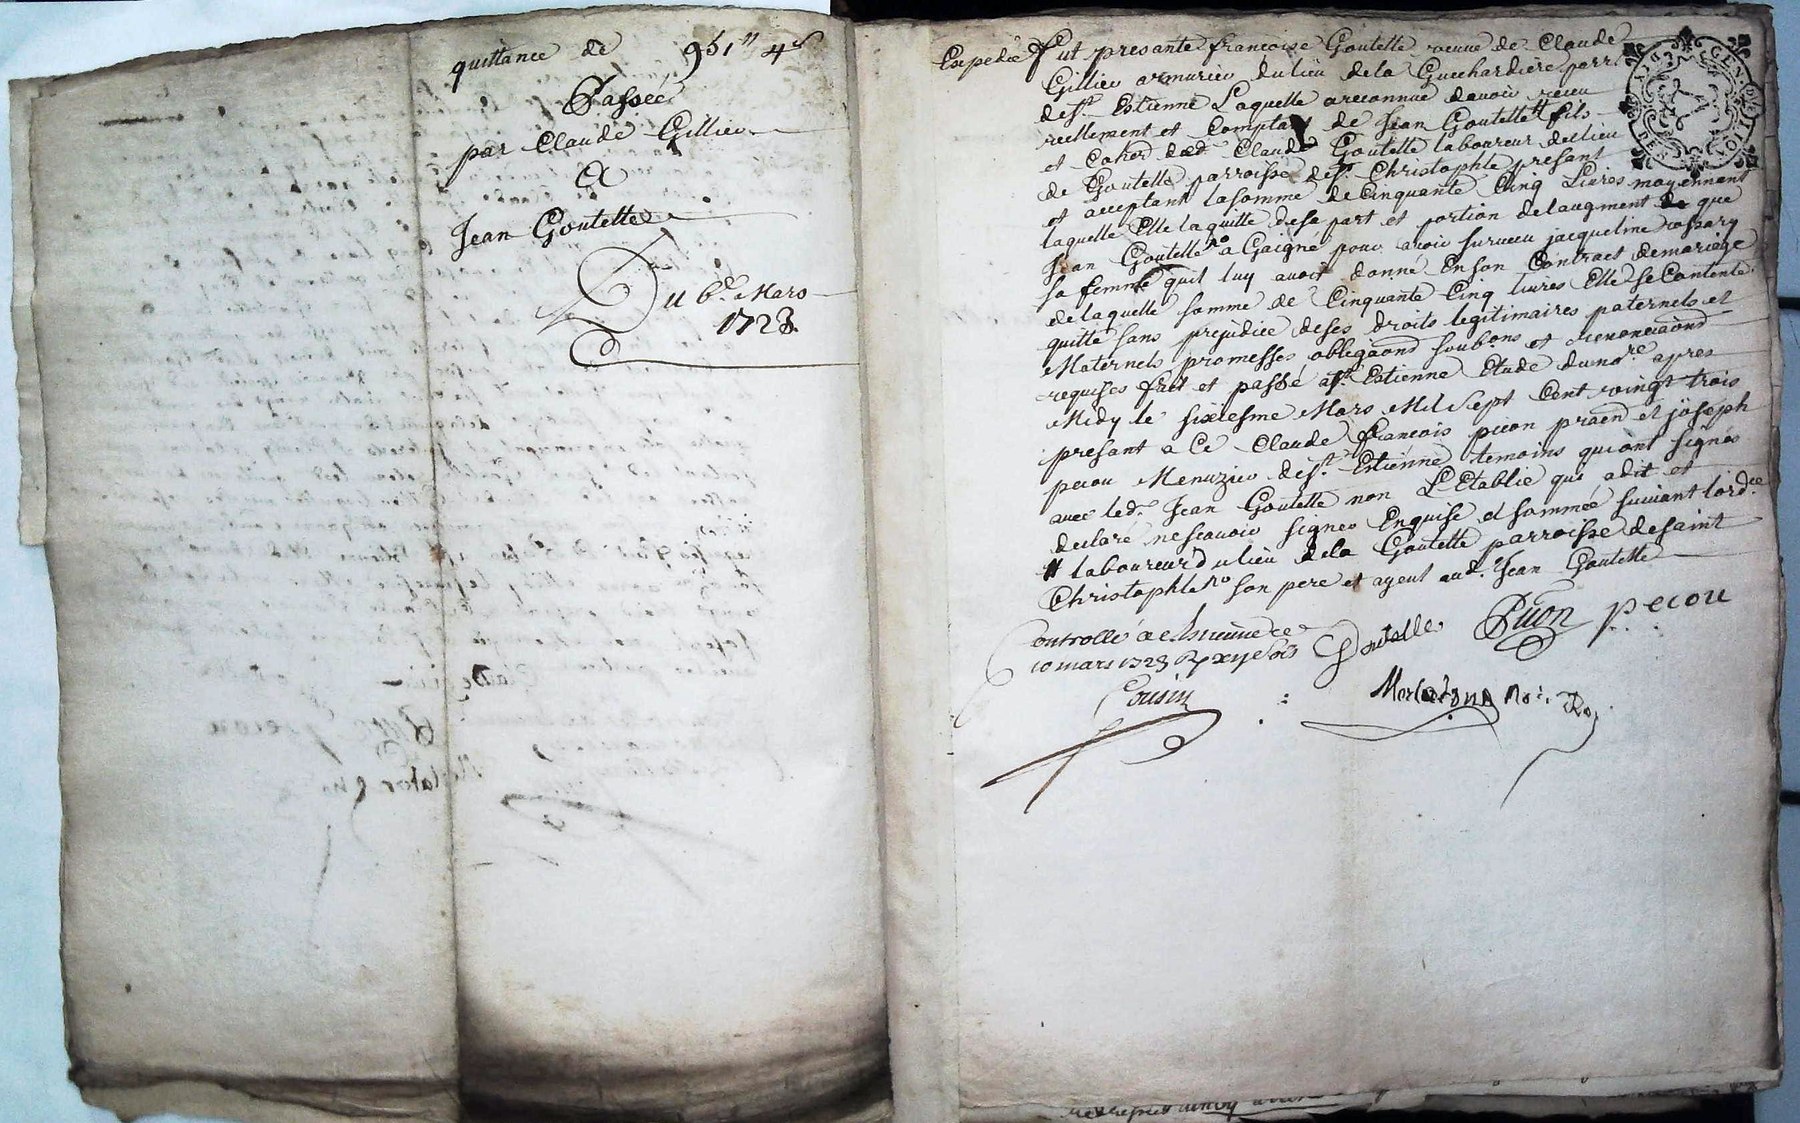 quittance de 951ll 4s
Passée
par Claude Gillier
A
Jean Goutelle
Du 6e. Mars
1723.
Expedié
Fut presante francoise Goutelle veuve de Claude
Gillier armurier du lieu de la Guichardiere parr.
de st. Estienne Laquelle a reconnue davoir receu
reellement et comptant de Jean Goutelle fils
et Claude Goutelle laboureur du lieu
de Goutelle parroisse de st. Christophle presant
et acceptant la somme de Cinquante Cinq Livres moyennant
laquelle Elle la quitte de sa part et portion de laugment que
Jean Goutelle a Gaigné pour avoir survecu jacqueline
sa femme quil luy avoit donné En son Contract de mariage
de laquelle somme de Cinquante Cinq livres Elle se Contente
quitte sans prejudice de ses droits legitimaires paternels et
Maternels promesses obligaons soubons et renonciaons
requises fait et passé a st. Estienne Etude du nore. apres
Midy le sixiesme Mars Mil Sept Cent vingt trois
presant a Ce Claude francois puon praen et joseph
pecou Menuzier de st. Estienne temoins qui ont signés
avec led. Jean Goutelle non L'Etablie qui a dit et
declaré ne scavoir signer Enquise et sommée suivant lord.ce
laboureur du lieu de la Goutelle parroisse de saint
Christophle son pere et ayeul aud. Jean Goutelle
Controllé a st estienne ce
10 mars 1723 R xij s
Goutelle Puon pecou
Cousin
No. Ro.